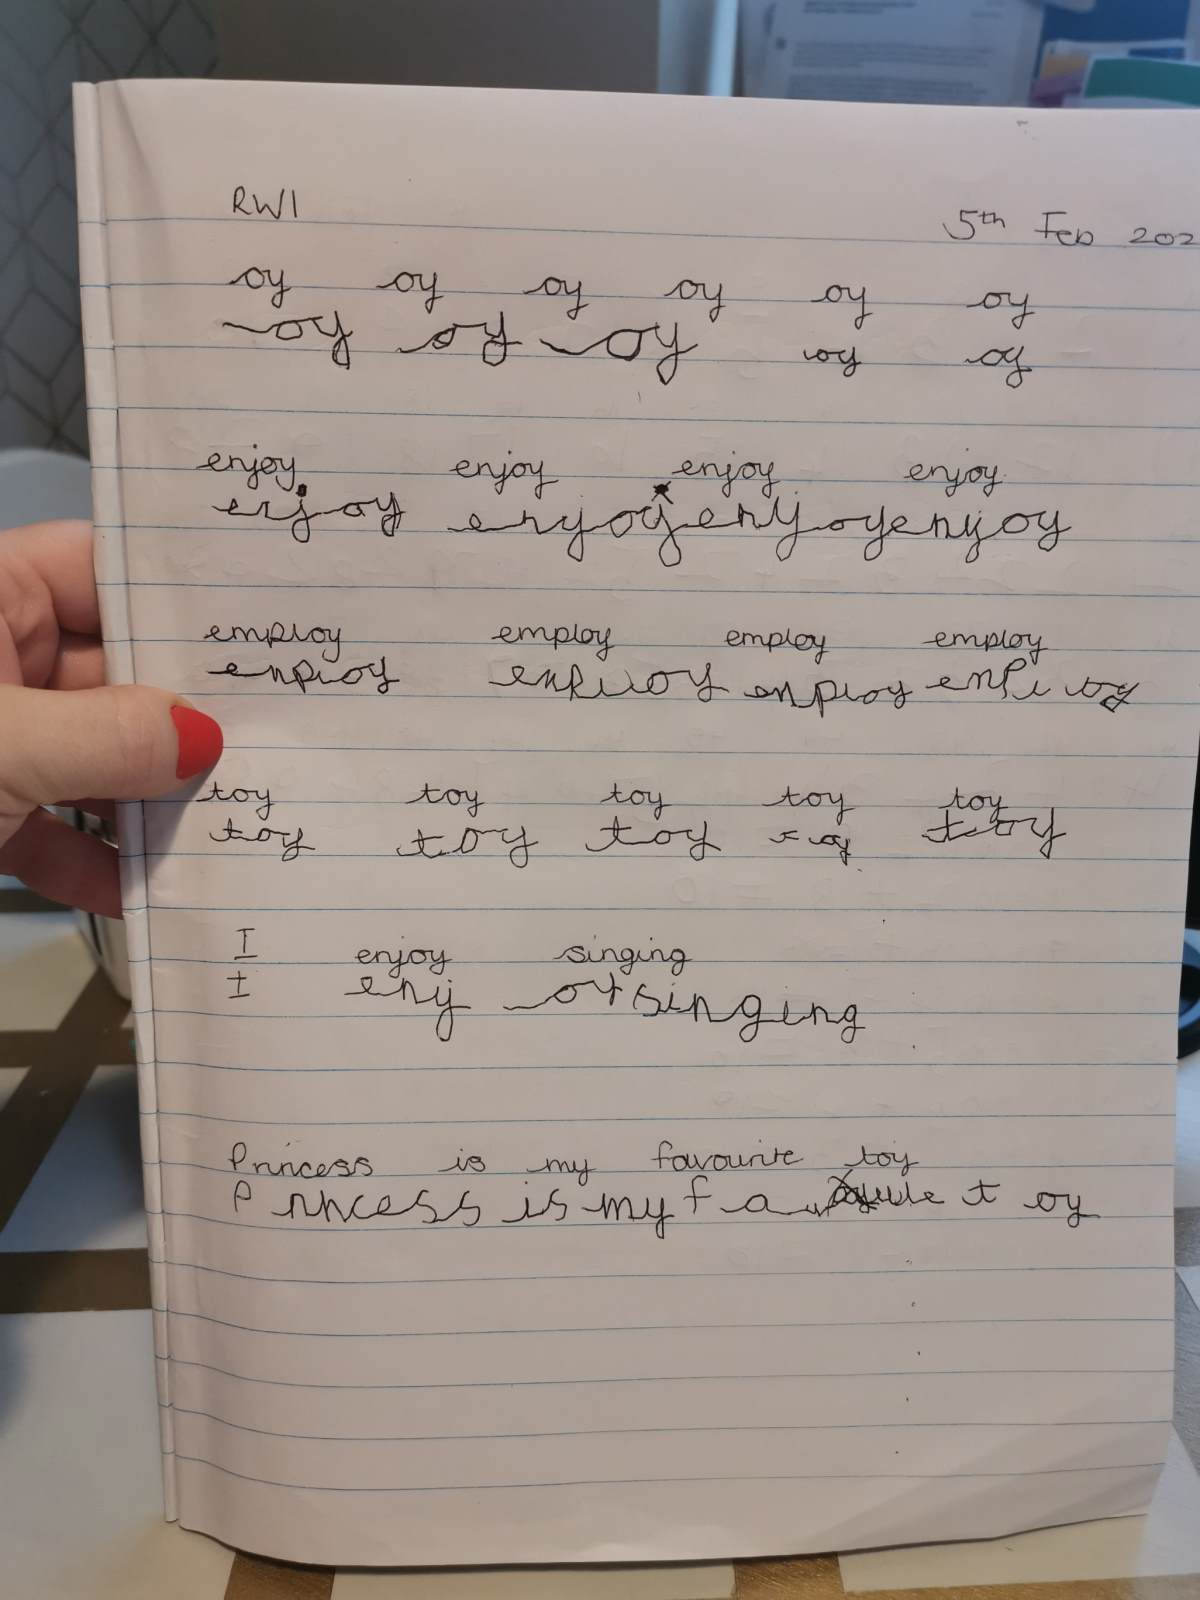 RWI
5th Feb 202
oy oy oy oy oy oy
oy oy oy oy oy
enjoy enjoy enjoy enjoy
enjoy enyoy enyoy enjoy
employ employ employ employ
enploy enploy enploy
toy toy toy toy toy
toy toy toy toy toy
I enjoy singing
I enj oy singing
Princess is my favourite toy
P rincess is my f a t oy